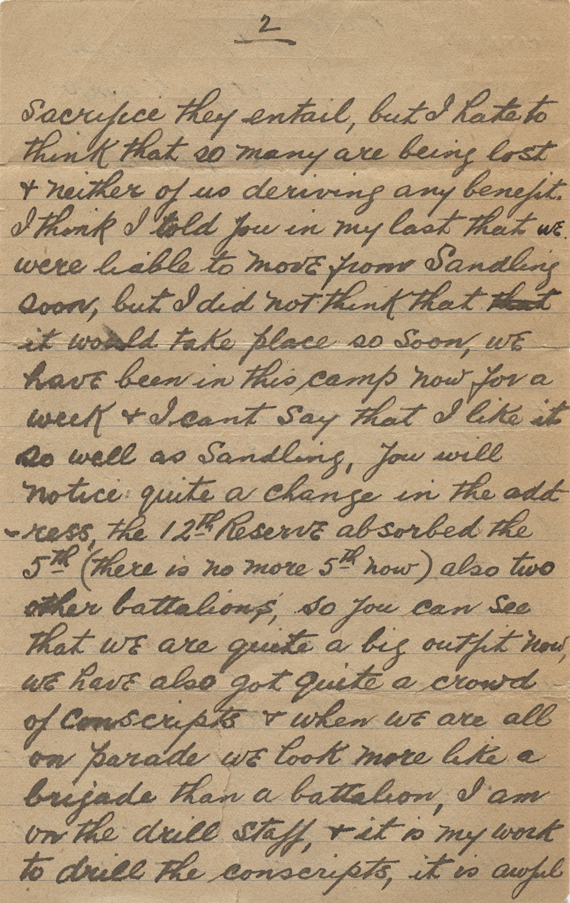 2
Sacrifice they entail, but I hate to
think that so many are being lost
& neither of us deriving any benefit.
I think I told you in my last that we
were liable to move from Sandling
soon, but I did not think that that
it would take place so soon, we
have been in this camp now for a
week & I cant say that I like it
so well as Sandling, you will
notice quite a change in the add
-ress, the 12th Reserve absorbed the
5th (there is no more 5th now) also two
other battalions, so you can see
that we are quite a big outfit now,
we have also got quite a crowd
of conscripts & when we are all
on parade we look more like a
brigade than a battalion, I am
on the drill staff, & it is my work
to drill the conscripts, it is awful